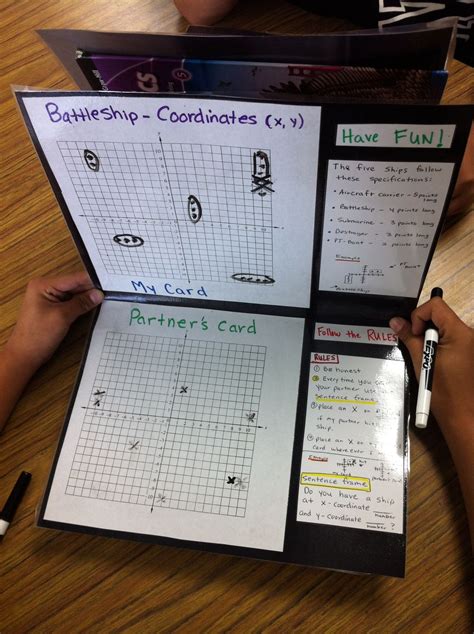 Battleship - Coordinates (x, y)
My Card
Have FUN!
The five ships follow
these specifications:
• Aircraft carrier - 5 points long
• Battleship - 4 points long
• Submarine - 3 points long
• Destroyer - 3 points long
• PT-Boat - 2 points long
Example
PT-Boat
Partner's Card
Follow the RULES
RULES
① Be honest
② Every time you
your partner use
sentence frame
③ place an X
if my partner
ship.
④ place an X
card where ever
Example
Sentence frame
Do you have a ship
at x-coordinate
number
and y-coordinate ?
number
EXPO